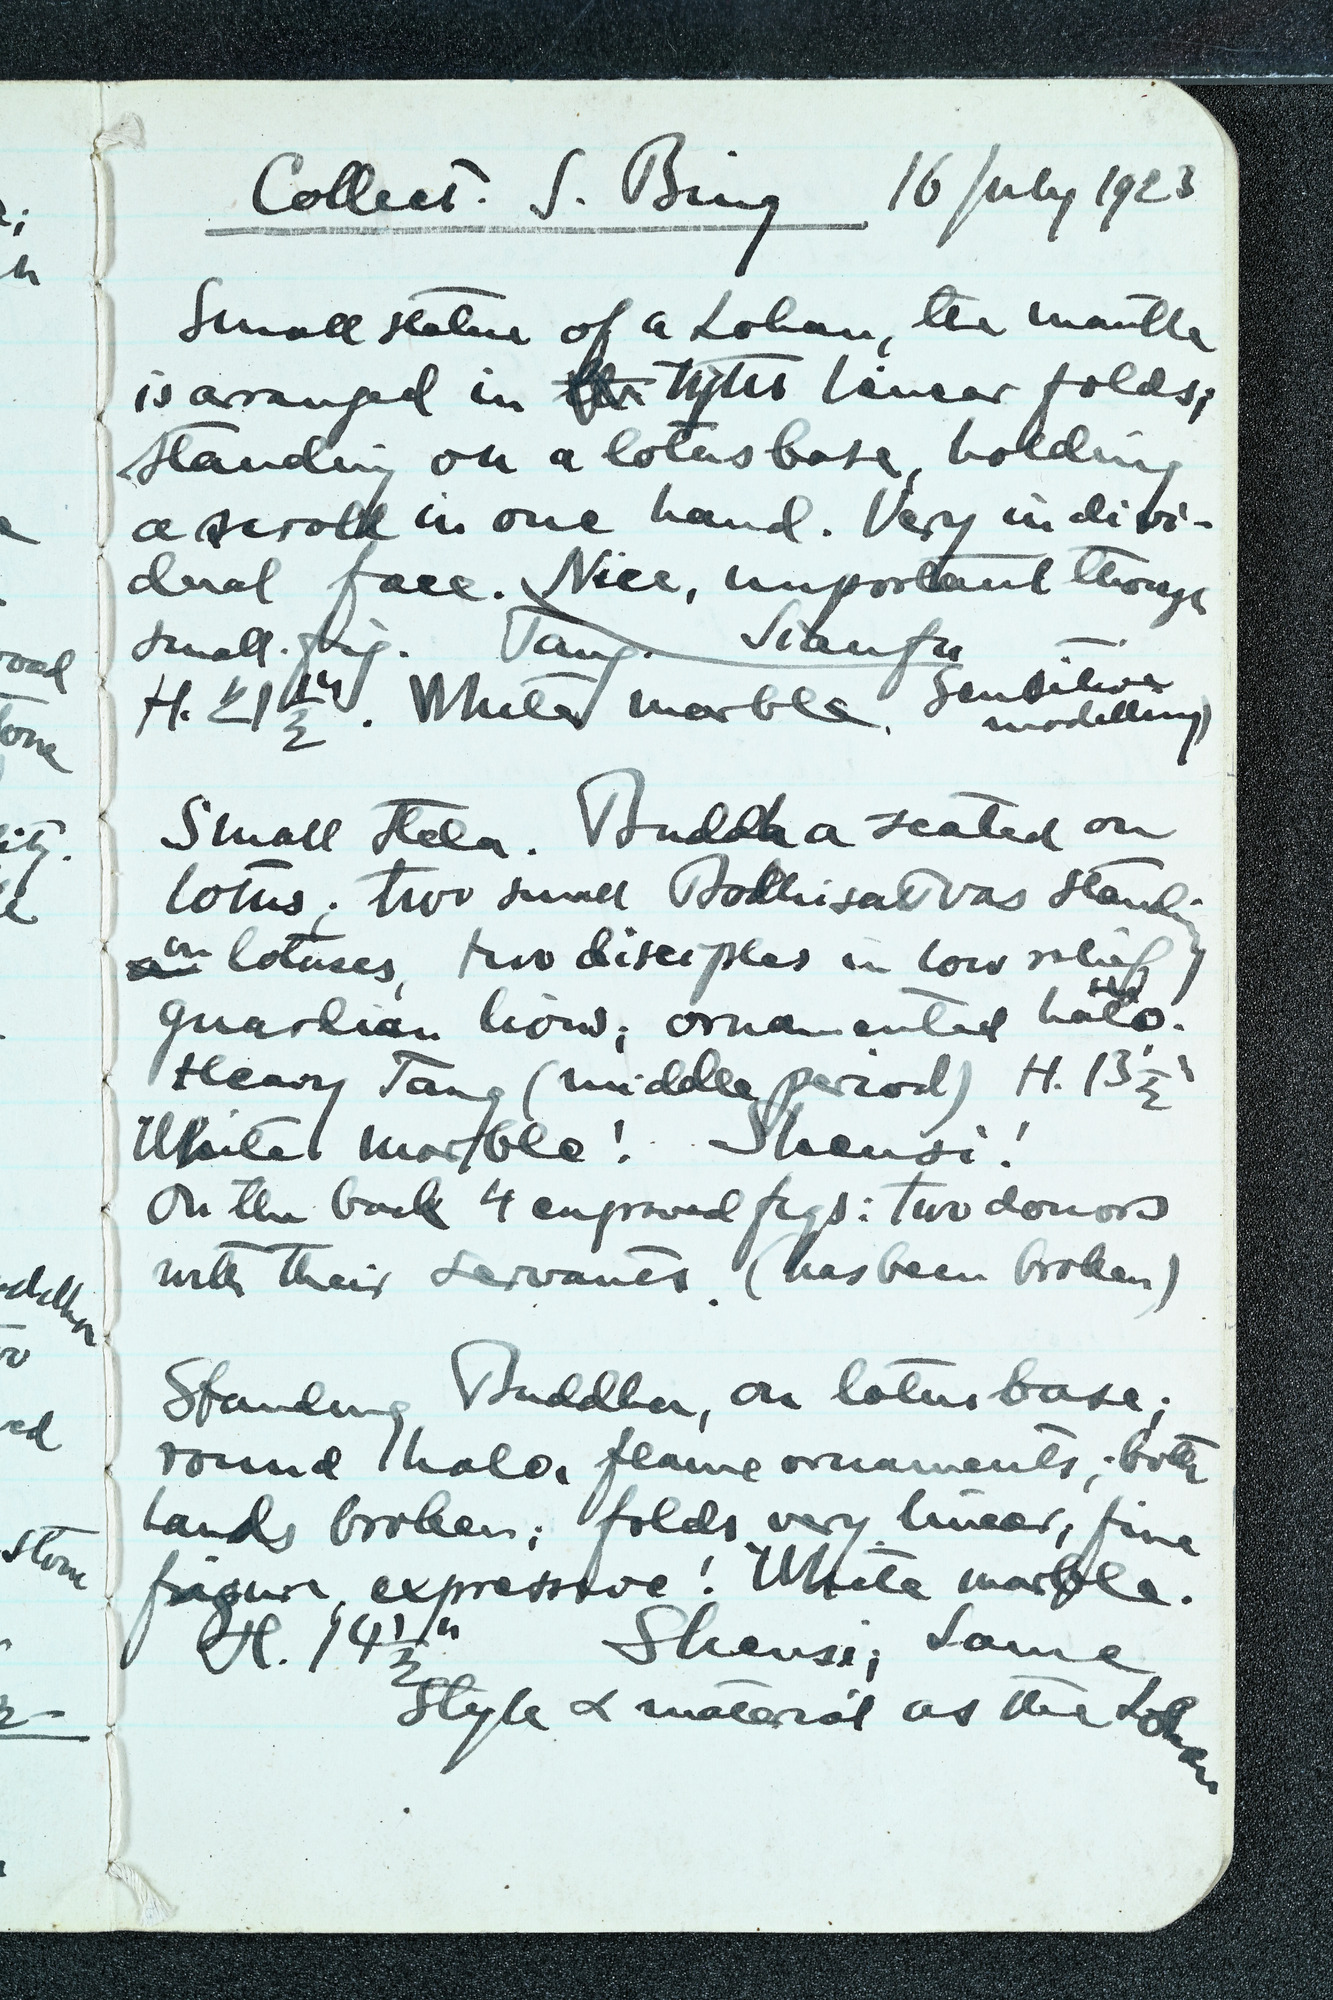 Collect. S. Bing 16/July 1923
Small statue of a Lohan, the mantle
is arranged in linear folds;
standing on a lotus base, holding
a scroll in one hand. Very indivi-
dual face. Nice, important though
small. fig. Tang. Sianfu
H. 21 1/2". White marble. Sensitive
modelling)
Small stela. Buddha seated on
lotus; two small Bodhisatvas standing
on lotuses, two disciples in low relief;
guardian lions; ornamented halo.
Heavy Tang (middle period) H. 13 1/2"
White marble! Shensi!
On the back 4 engraved figs: two donors
with their servants. (has been broken)
Standing Buddha, on lotus base;
round halo, flame ornaments; both
hands broken; folds very linear, fine
figure, expressive! White marble.
H. 14 1/2" Shensi; Same
style & material as the Lohan